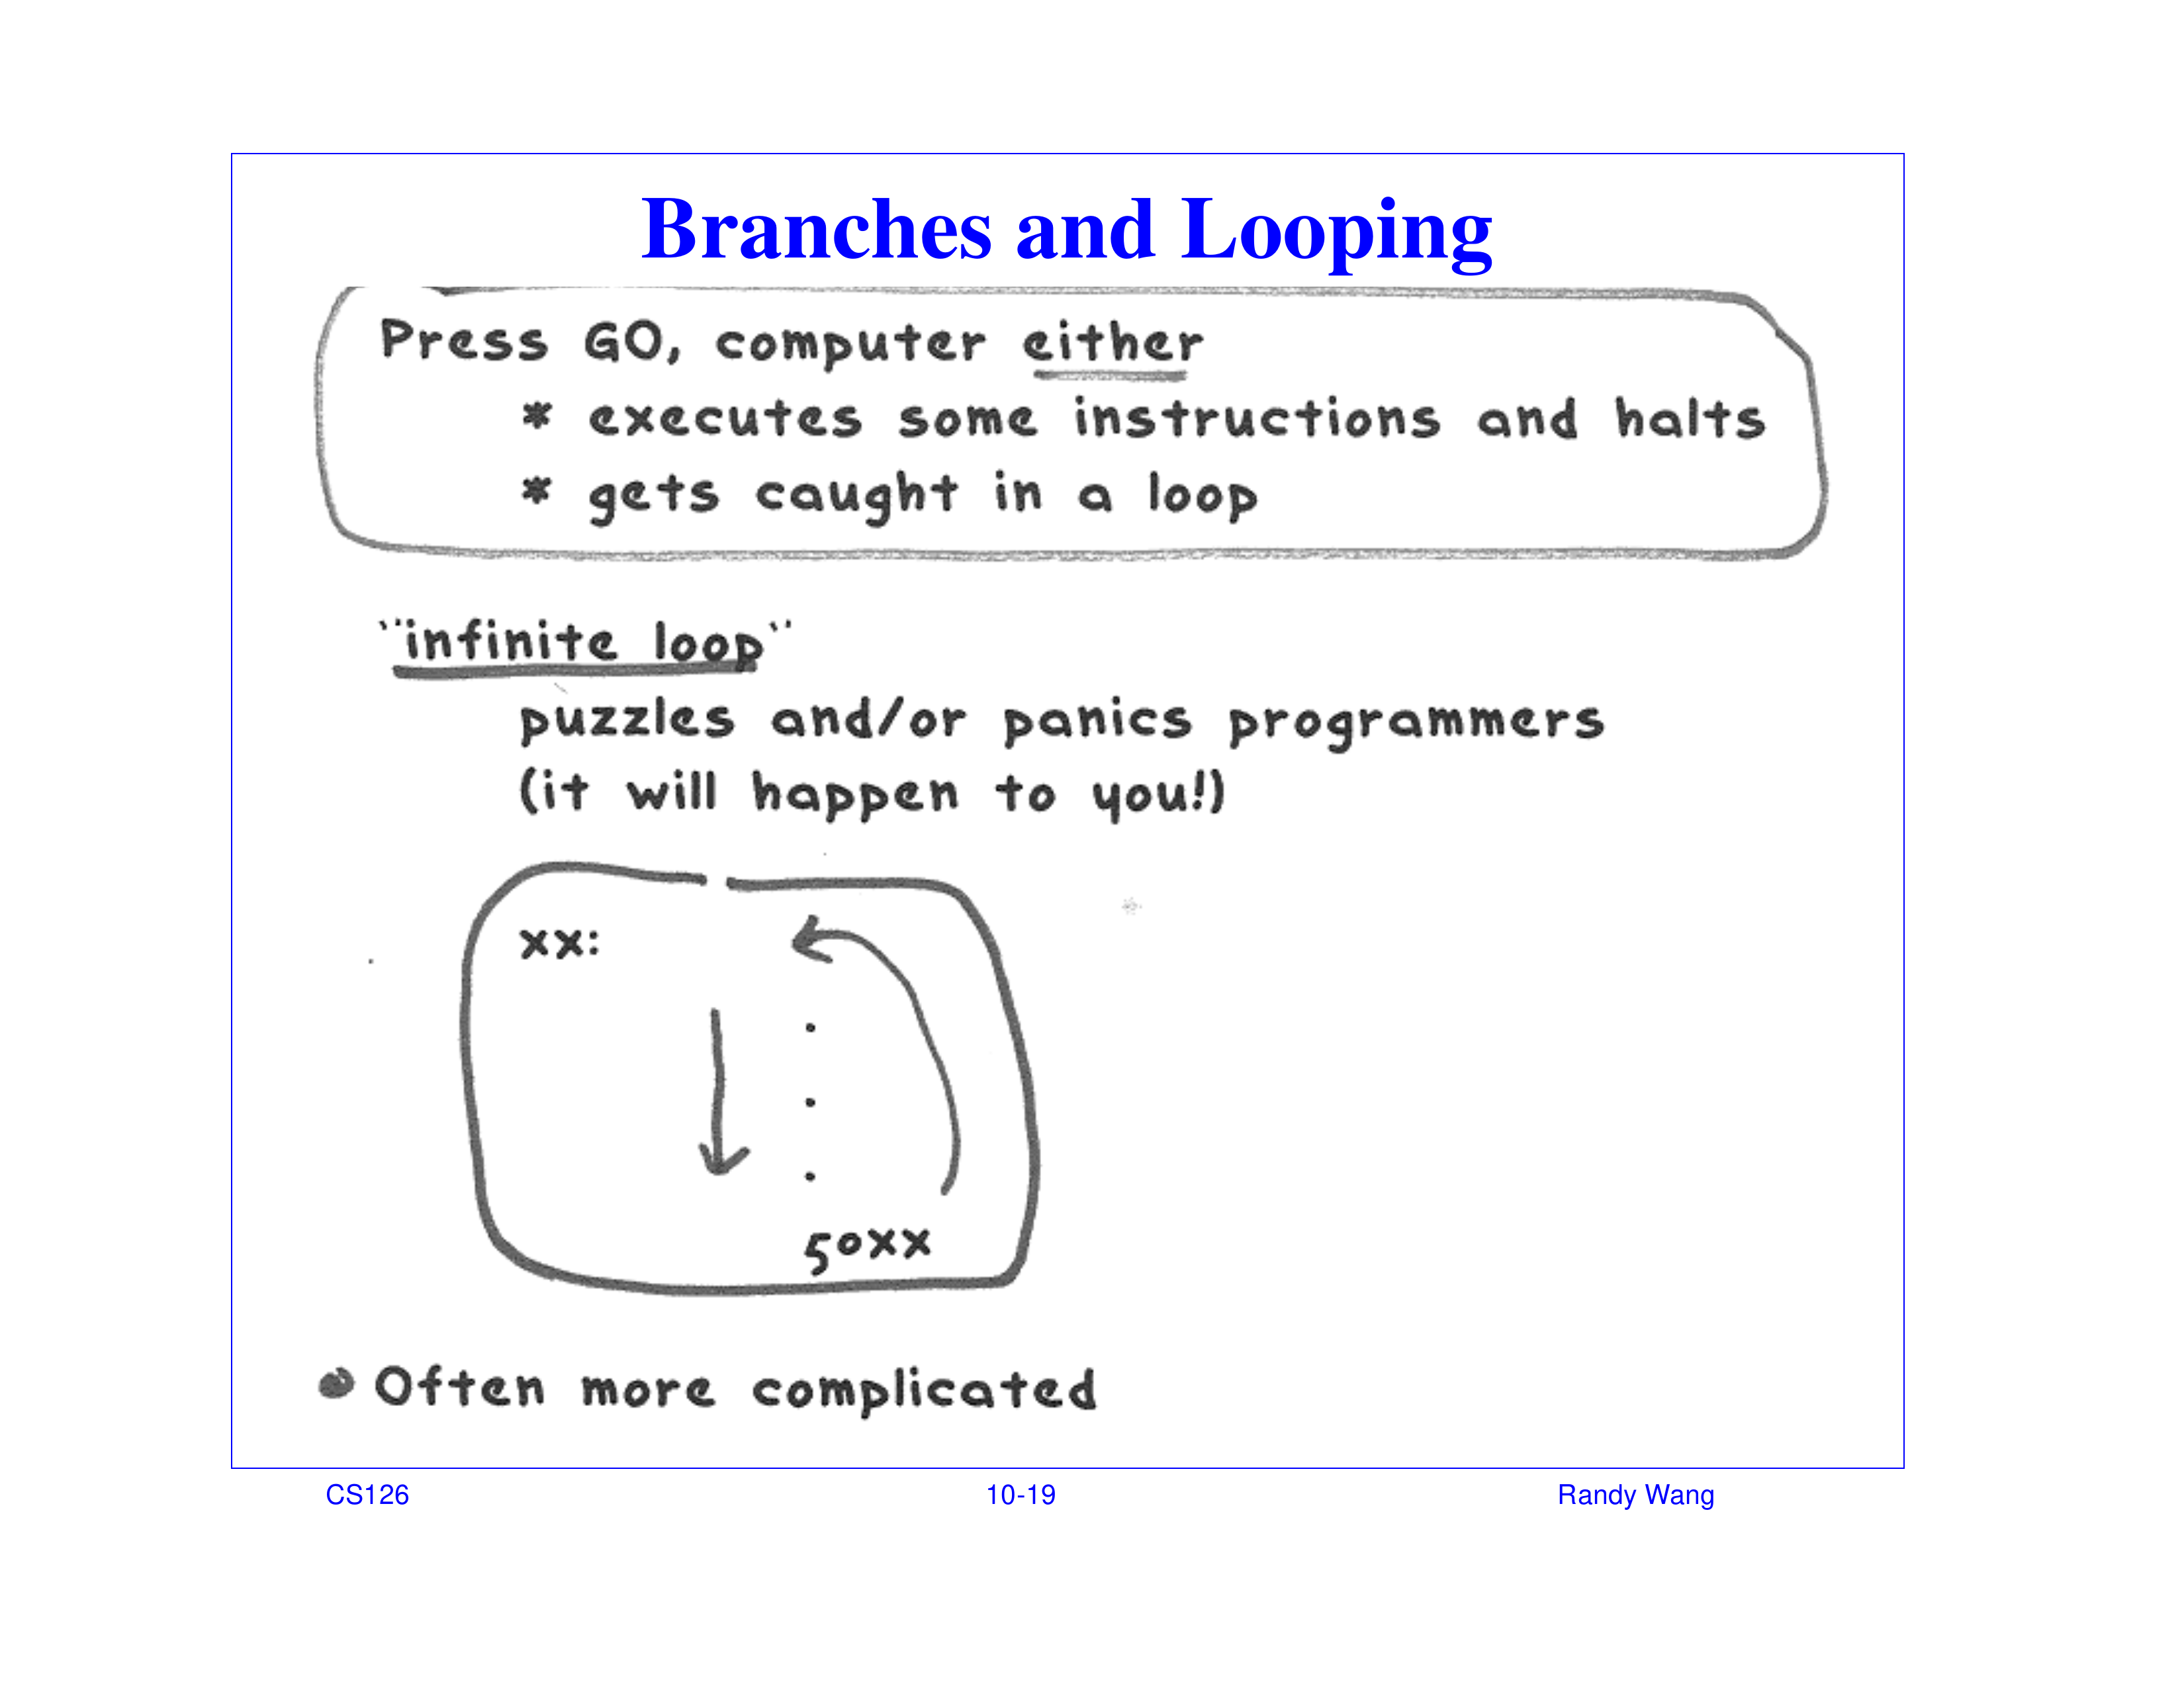 Branches and Looping
Press GO, computer either
* executes some instructions and halts
* gets caught in a loop
"infinite loop"
puzzles and/or panics programmers
(it will happen to you!)
xx:
.
.
.
50xx
Often more complicated
CS126 10-19 Randy Wang